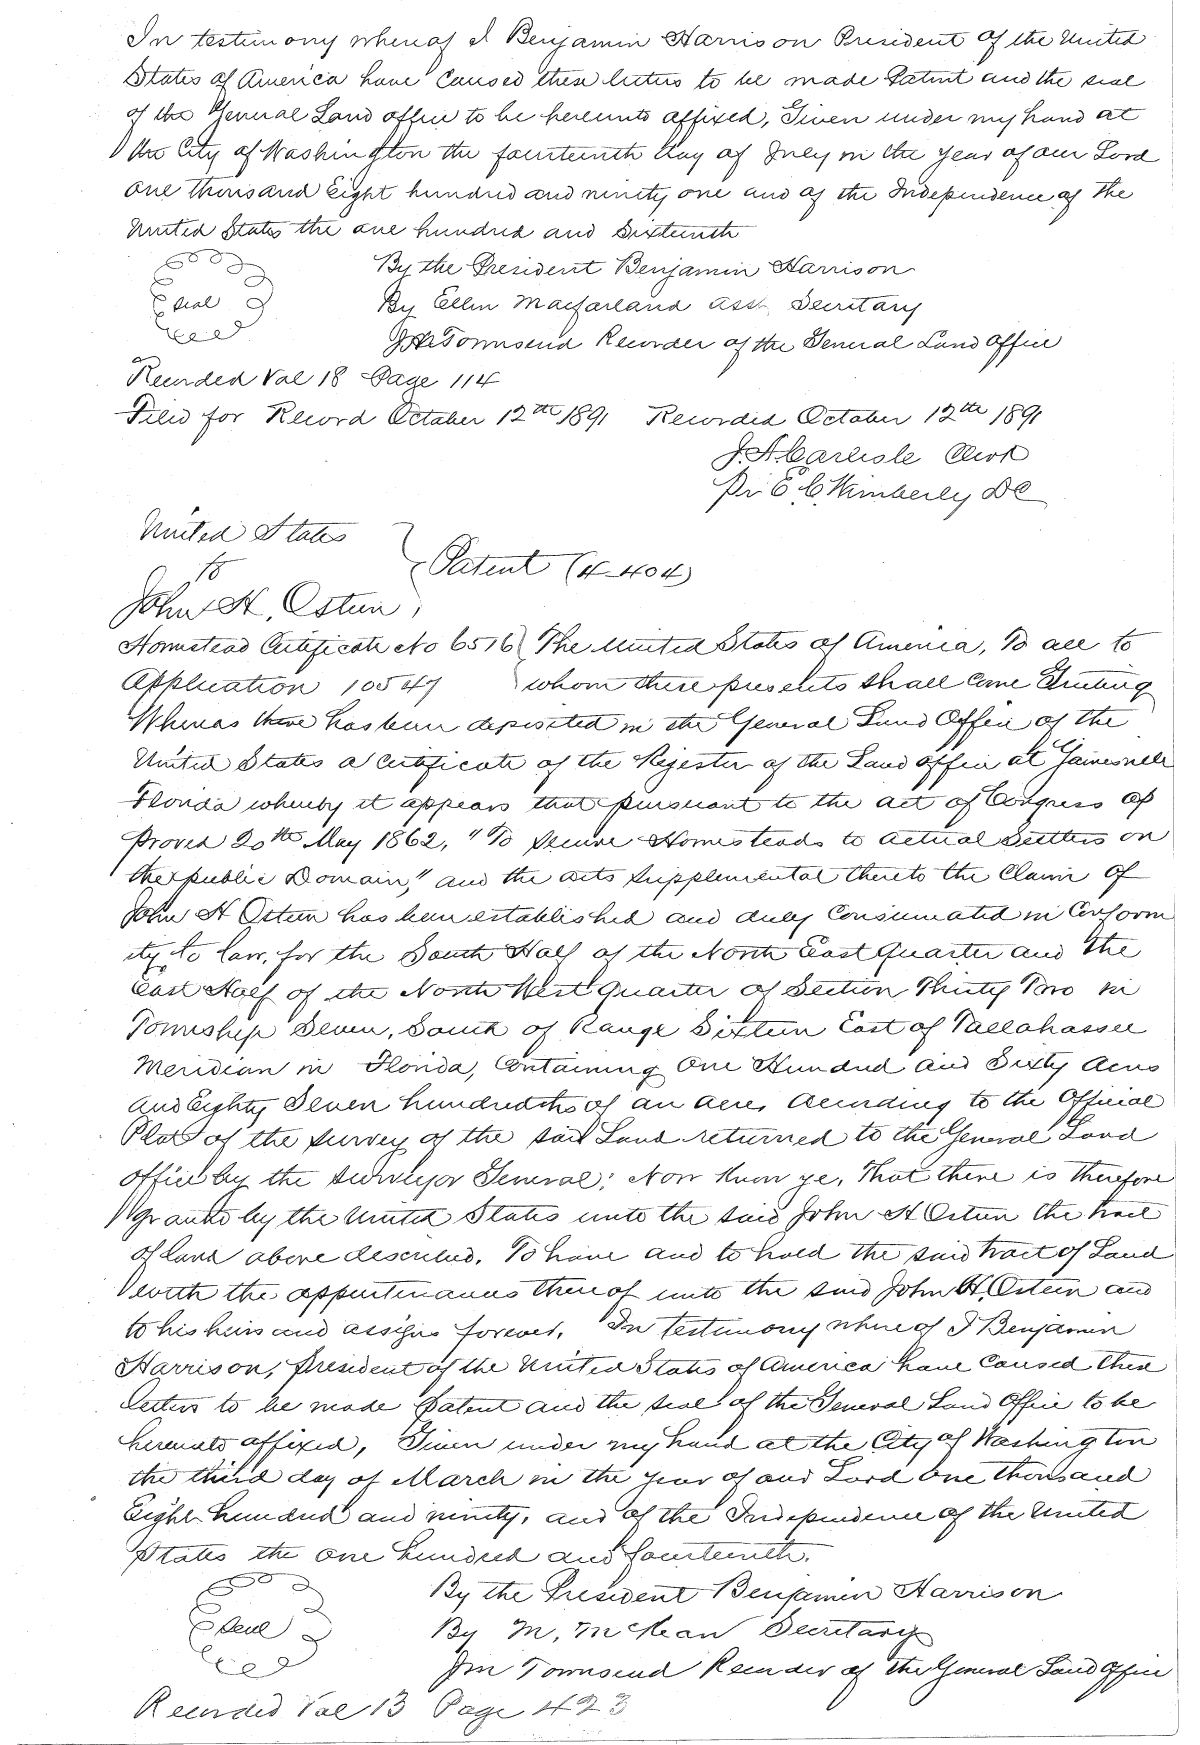 In testimony whereof I Benjamin Harrison President of the United
States of America have caused these letters to be made Patent and the seal
of the General Land office to be hereunto affixed, Given under my hand at
the City of Washington the fourteenth day of July in the year of our Lord
one thousand Eight hundred and ninety one and of the Independence of the
United States the one hundred and Sixteenth
By the President Benjamin Harrison
Seal By Ellen Macfarland asst Secretary
Townsend Recorder of the General Land Office
Recorded Vol 18 Page 114
Filed for Record October 12th 1891 Recorded October 12th 1891
J. A. Carlisle Clerk
Pr E. C. Wimberly DC
United States
to
Patent (4-404)
John H. Osteen,
Homestead Certificate No 6516 The United States of America, To all to
Application 10547 whom these presents shall come Greeting
Whereas there has been deposited in the General Land Office of the
United States a Certificate of the Register of the Land office at Gainesville
Florida whereby it appears that pursuant to the act of Congress ap
proved 20th May 1862, "To secure Homesteads to actual Settlers on
the public Domain," and the acts supplemental thereto the Claim of
John H Osteen has been established and duly Consumated in Conform
ity to law, for the South Half of the North East Quarter and the
East Half of the North West Quarter of Section Thirty Two in
Township Seven, South of Range Sixteen East of Tallahassee
Meridian in Florida, Containing One Hundred and Sixty Acres
and Eighty Seven hundredths of an acre, According to the Official
Plat of the survey of the said Land returned to the General Land
office by the surveyor General; Now Know ye, That there is therefore
granted by the United States unto the said John H Osteen the tract
of land above described, To have and to hold the said tract of Land
with the appurtenances thereof unto the said John H. Osteen and
to his heirs and assigns forever. In testimony whereof I Benjamin
Harrison, President of the United States of America have caused these
letters to be made Patent and the seal of the General Land Office to be
hereunto affixed, Given under my hand at the City of Washington
the third day of March in the year of our Lord One thousand
Eight hundred and ninety, and of the Independence of the United
States the one hundred and fourteenth.
By the President Benjamin Harrison
Seal By M. McKean Secretary
Townsend Recorder of the General Land Office
Recorded Vol 13 Page 423